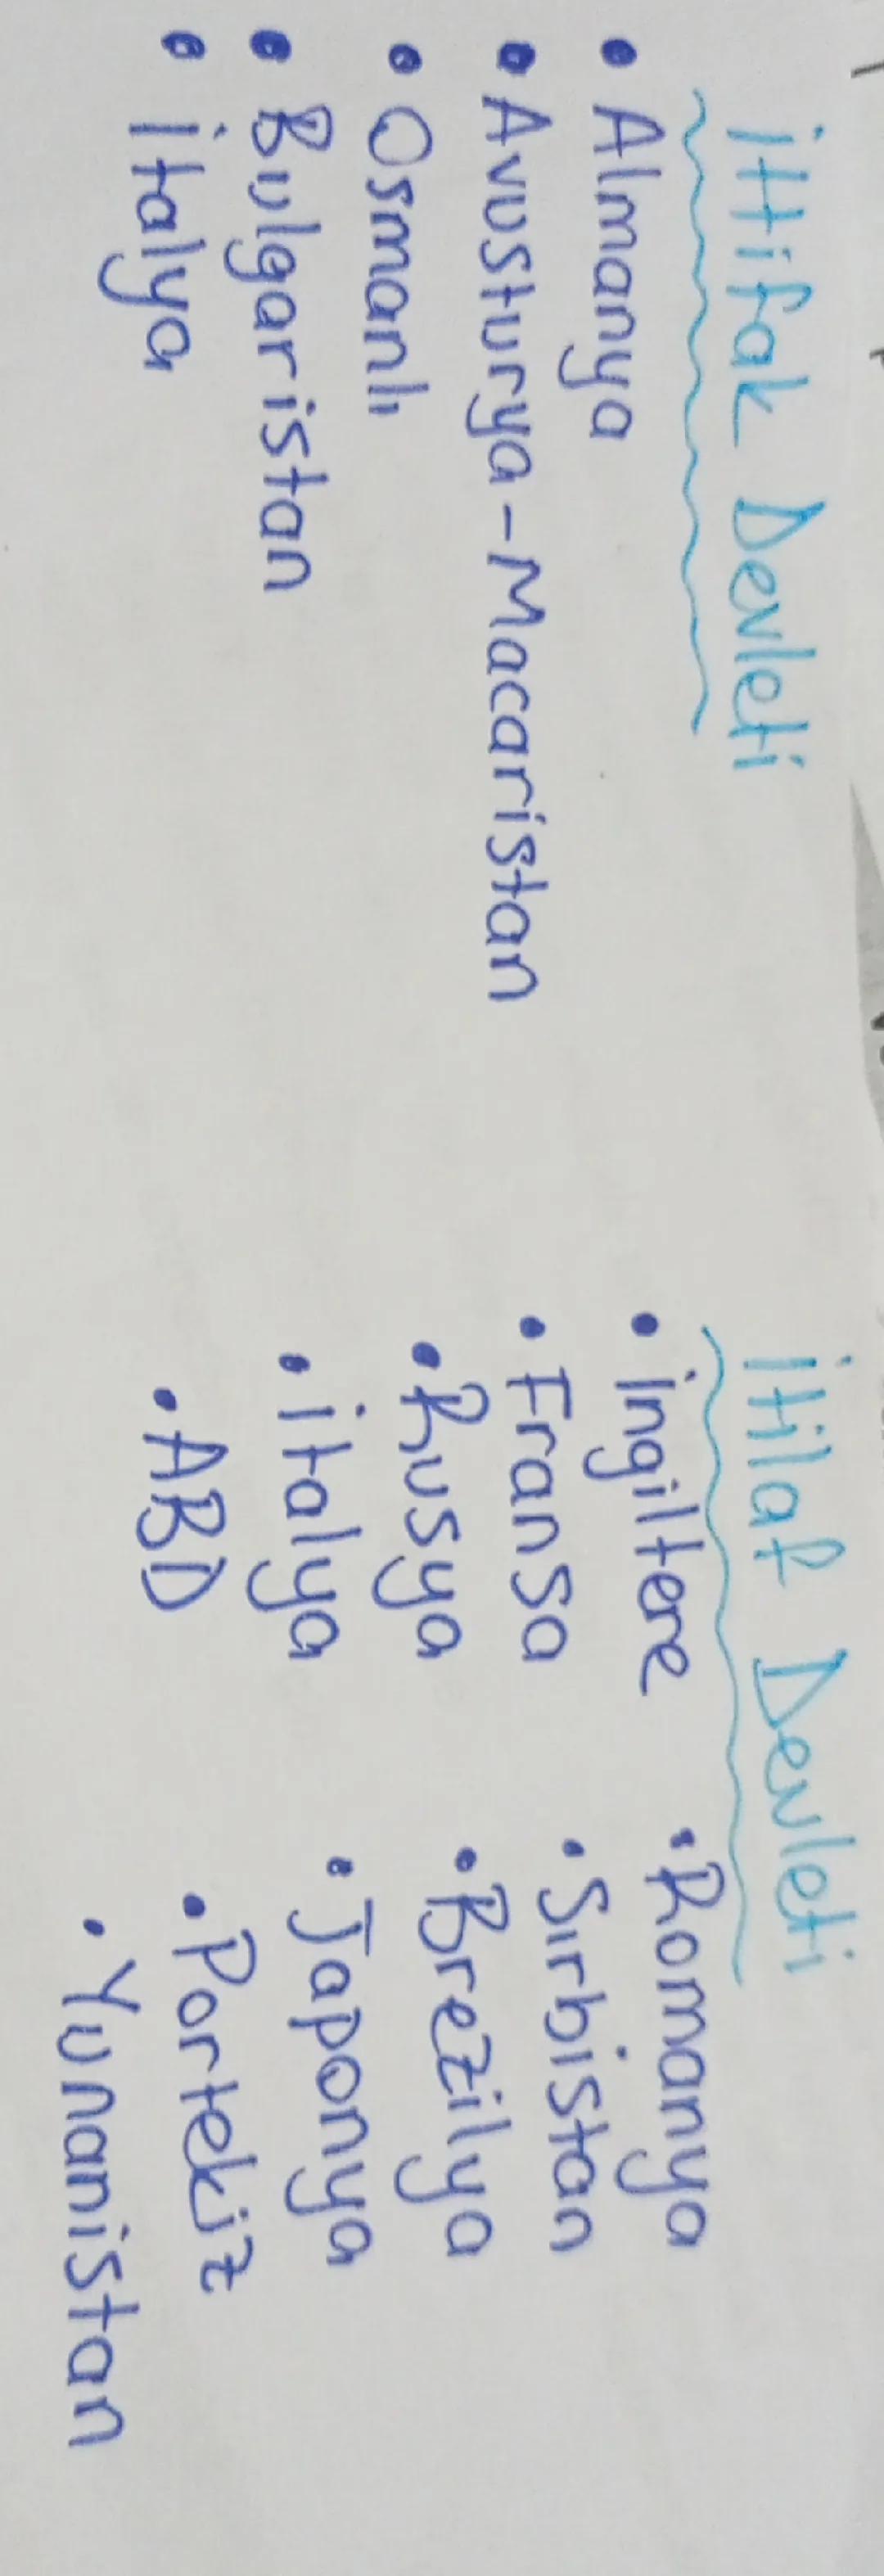 ittifak Devleti
• Almanya
• Avusturya-Macaristan
• Osmanlı
• Bulgaristan
• İtalya
itilaf Devleti
• İngiltere
• Fransa
• Rusya
• İtalya
• ABD
• Romanya
• Sırbistan
• Brezilya
• Japonya
• Portekiz
• Yunanistan